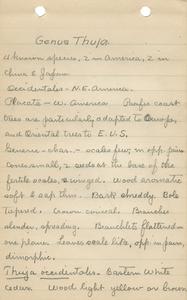 Genus Thuja.
4 known species, 2 in America, 2 in
China & Japan.
Occidentales - N.E. America.
Plicata - W. America. Pacific coast
trees are particularly adapted to Europe,
and Oriental trees to E. U.S.
Generic - char. - scales few, in opp. pairs.
Cones small, 2 seeds at the base of the
fertile scales, winged. Wood aromatic
soft & sap thin. Bark shreddy. Bole
tapered. Crown conical. Branches
slender, spreading. Branchlets flattened in
one plane. Leaves scale like, opp. in pairs,
dimorphic.
Thuja occidentalis. Eastern White
Cedar. Wood light yellow or brown